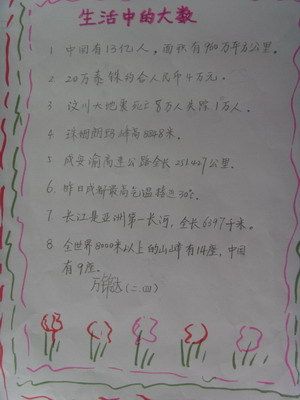 生活中的大数
1. 中国有13亿人，面积有960万平方公里。
2. 20万泰铢约合人民币4万元。
3. 汶川大地震死亡8万人失踪1万人。
4. 珠姆朗玛峰高8848米。
5. 成安渝高速公路全长251.427公里。
6. 昨日成都最高气温接近30℃。
7. 长江是亚洲第一长河，全长6397千米。
8. 全世界8000米以上的山峰有14座，中国
有9座。
(二.四)